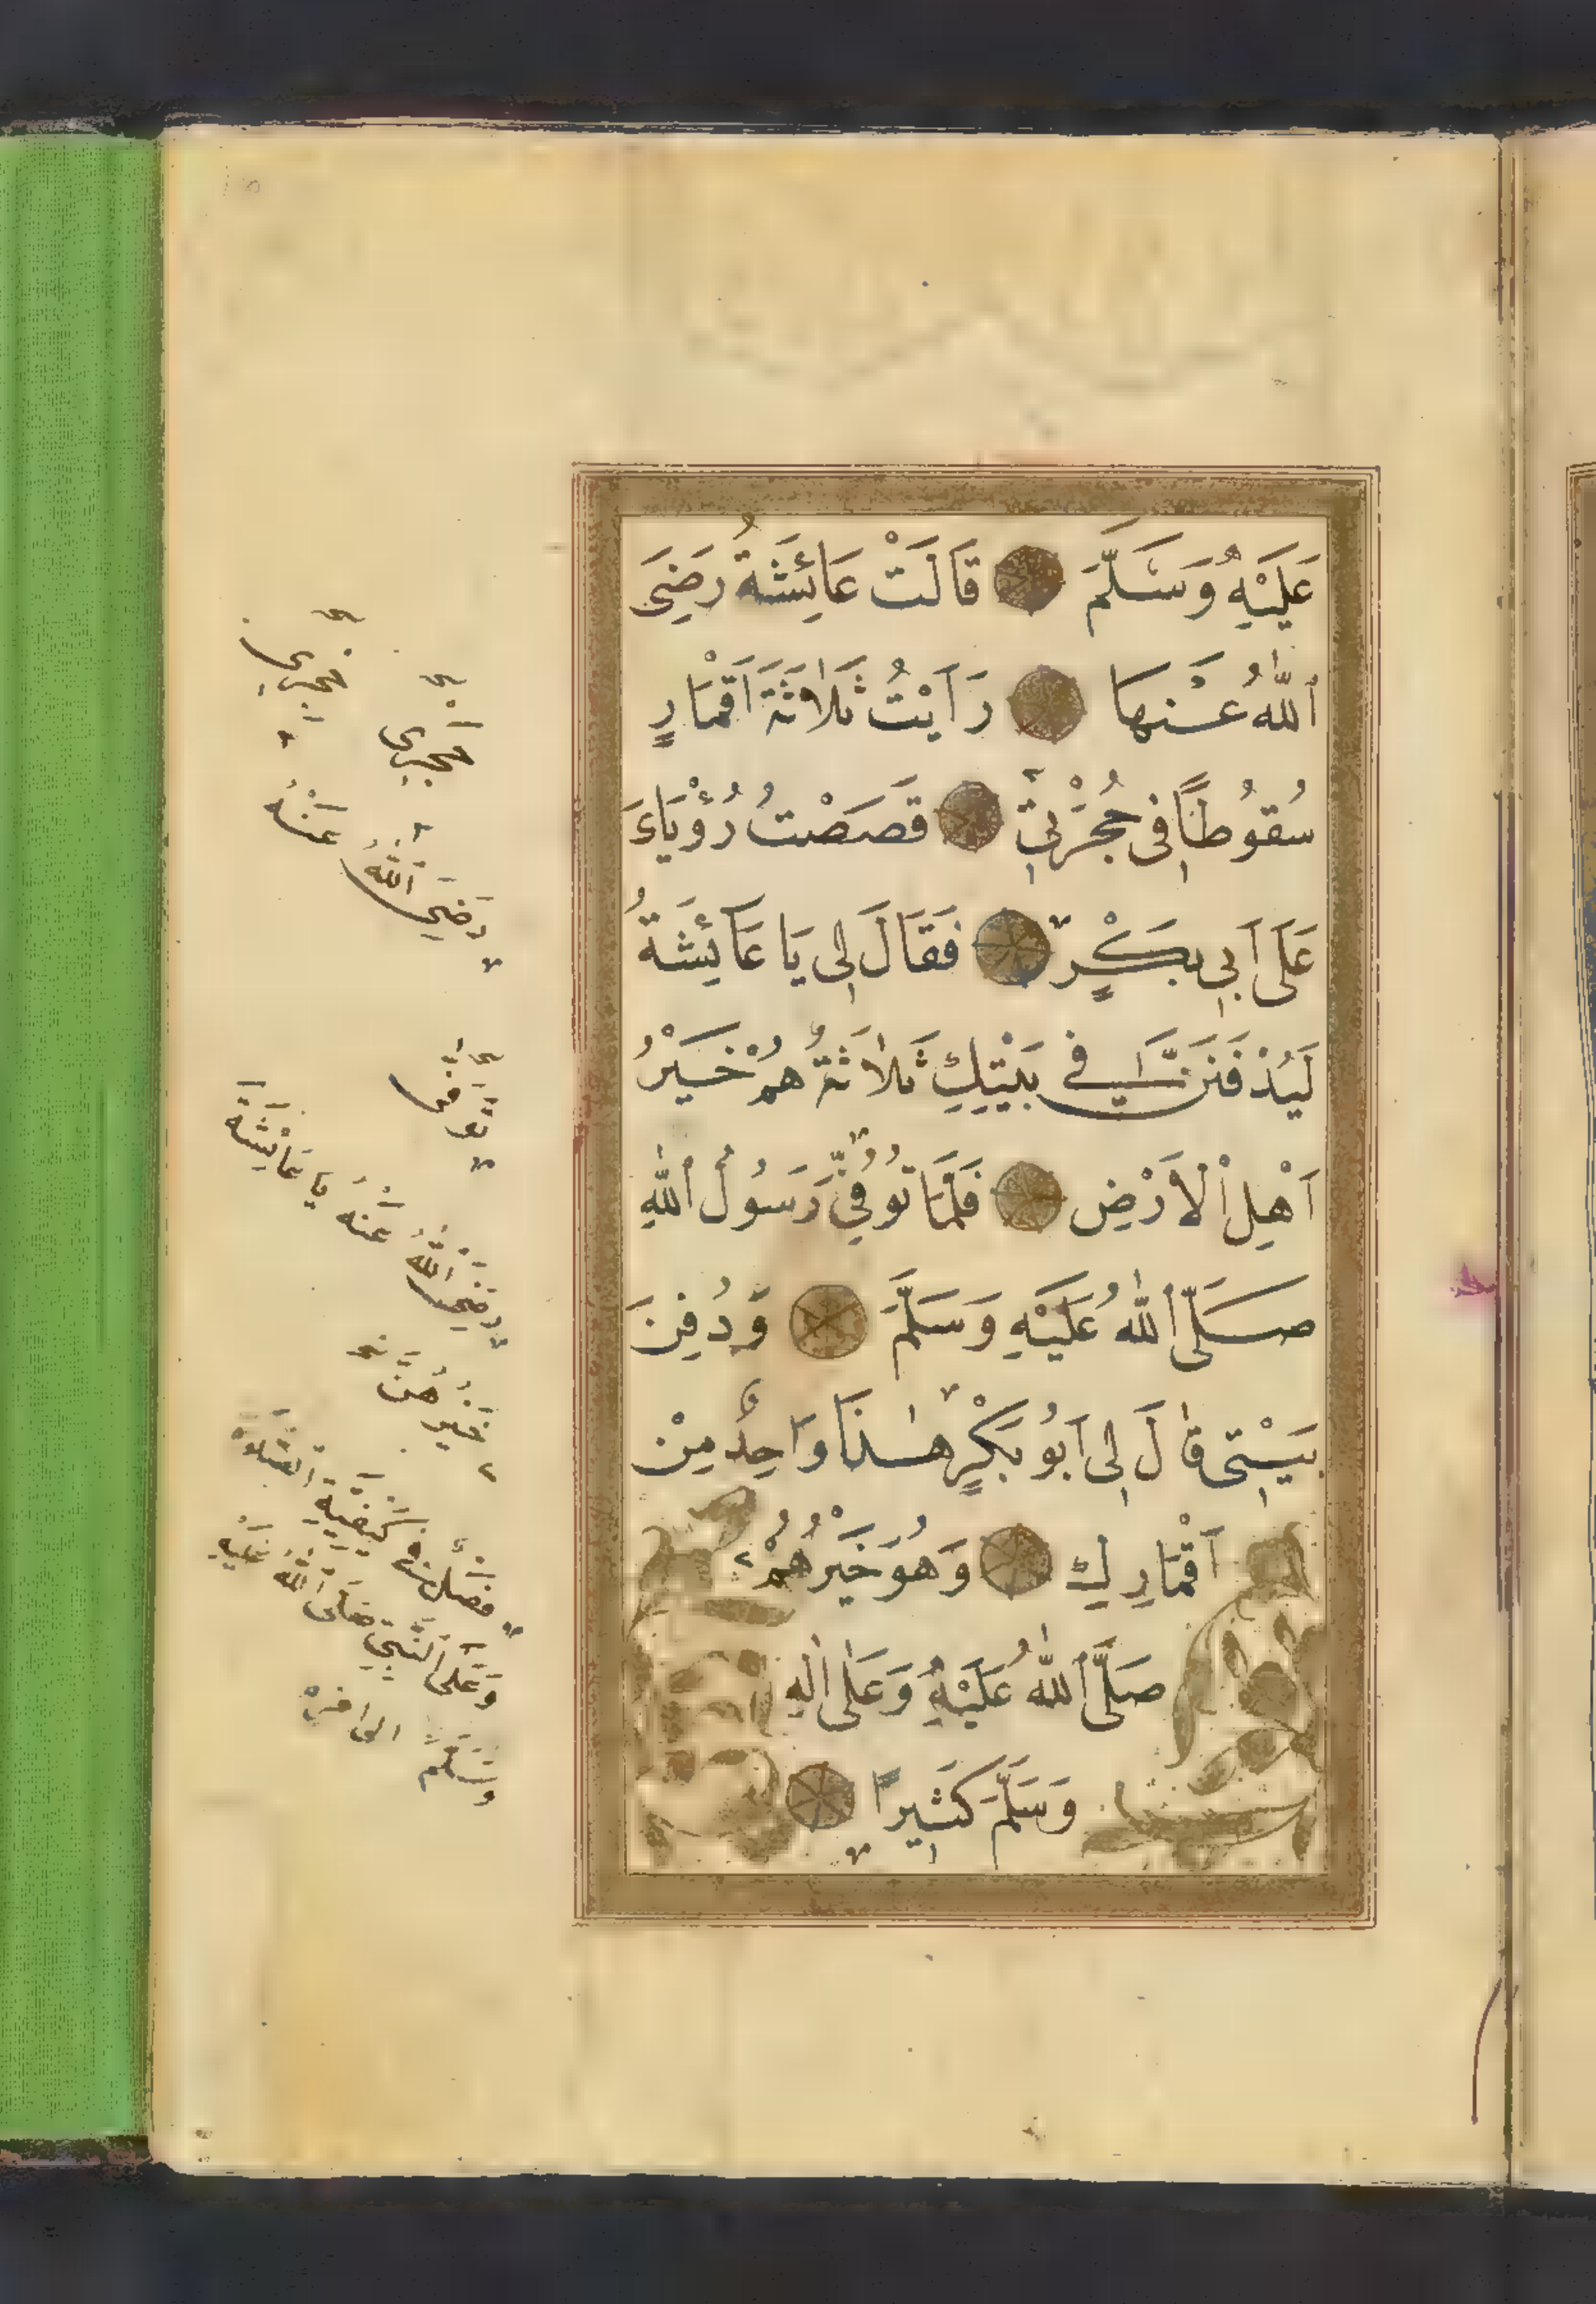 عَلَيْهِ وَسَلَّمَ قَالَتْ عَائِشَةُ رَضِيَ
اللّٰهُ عَنْهَا رَاَيْتُ ثَلَاثَةَ اَقْمَارٍ
سُقُوطًا فِى حُجْرَتِى قَصَصْتُ رُؤْيَاىَ
عَلَى اَبِى بَكْرٍ فَقَالَ لِى يَا عَائِشَةُ
لَيُدْفَنَنَّ فِي بَيْتِكِ ثَلَاثَةٌ هُمْ خَيْرُ
اَهْلِ الْاَرْضِ فَلَمَّا تُوُفِّيَ رَسُولُ اللّٰهِ
صَلَّى اللّٰهُ عَلَيْهِ وَسَلَّمَ وَدُفِنَ
بَيْتِى قَالَ لِى اَبُو بَكْرٍ هٰذَا وَاحِدٌ مِنْ
اَقْمَارِكِ وَهُوَ خَيْرُهُمْ
صَلَّى اللّٰهُ عَلَيْهِ وَعَلٰى اٰلِهِ
وَسَلَّمَ كَثِيرًا
حجرى
حجرى
رضي الله عنه
توفى
رضي الله عنه يا عائشة
فصل في كيفية الصلاة
وعلى النبي صلى الله عليه
وسلم